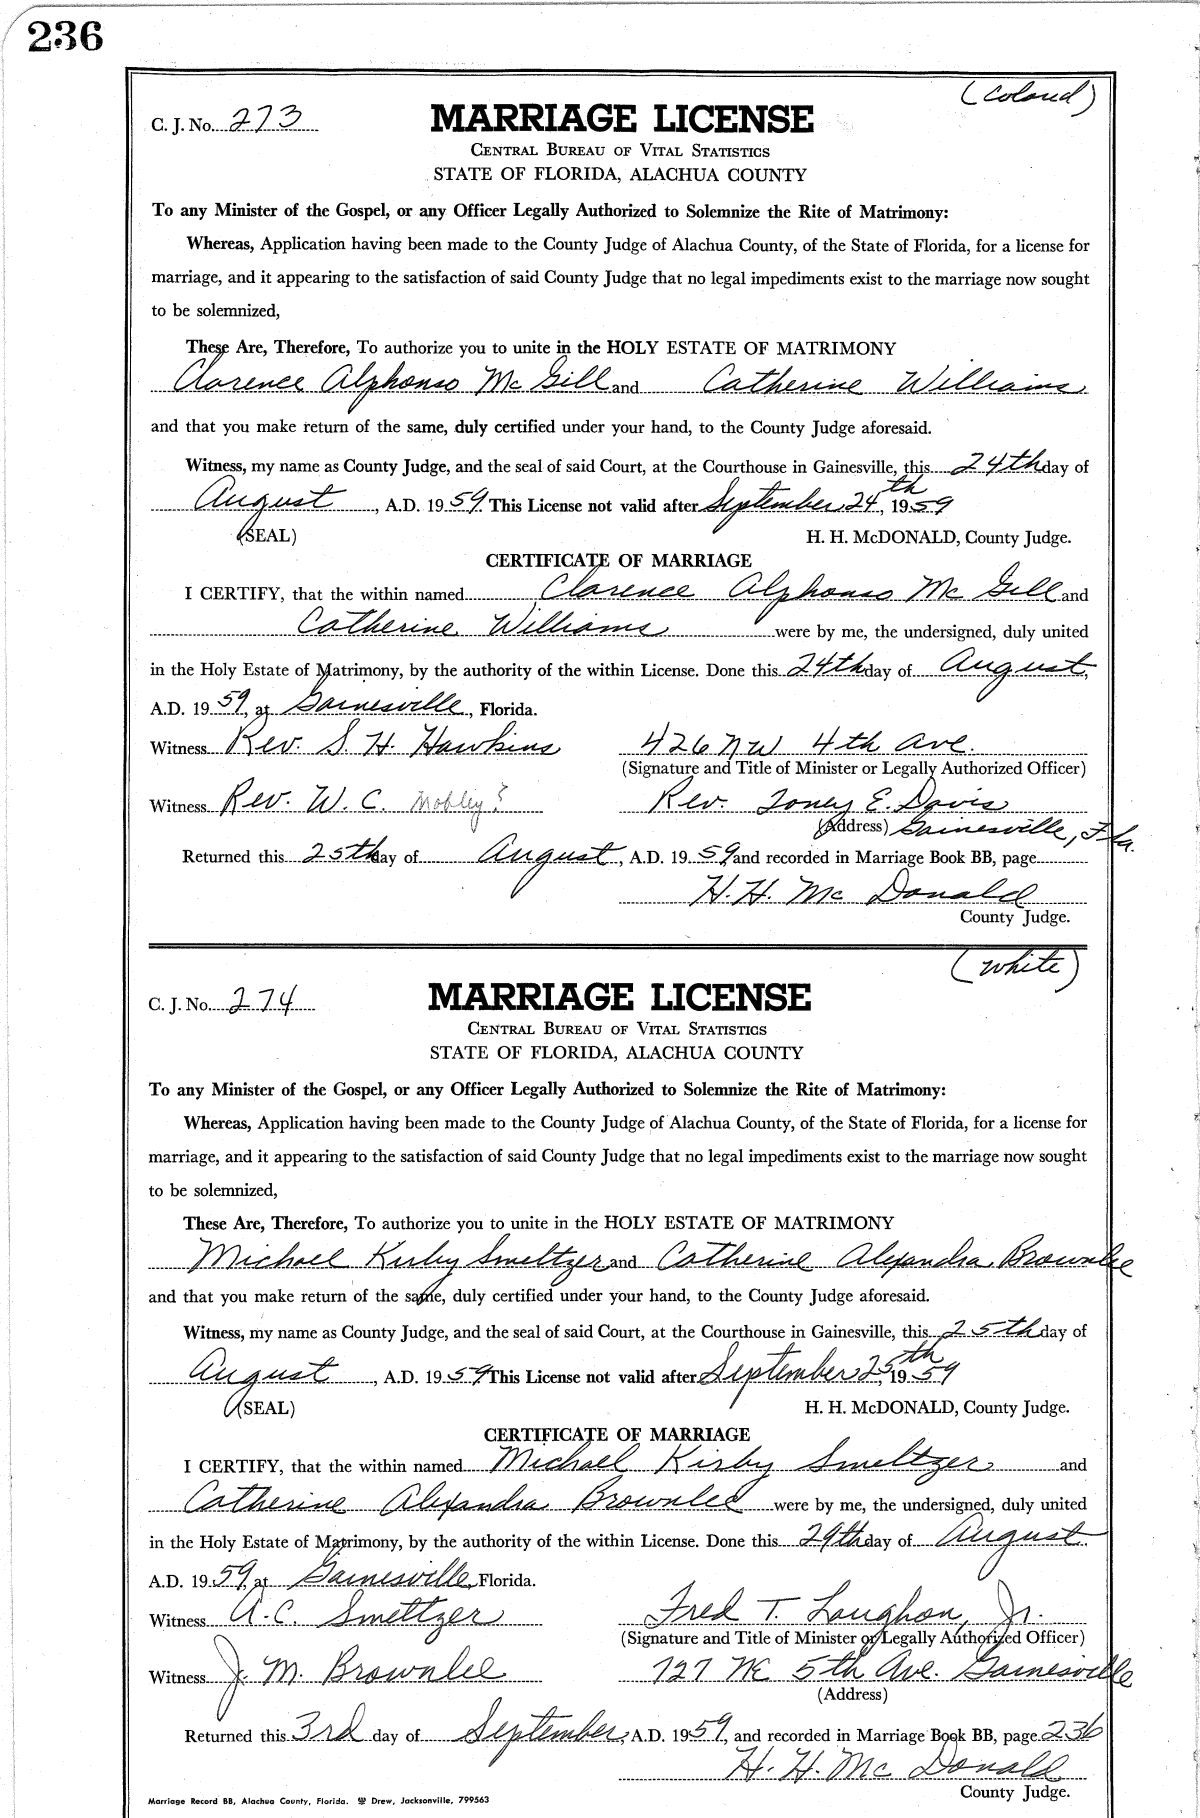 236
(Colored)
C. J. No. 273
MARRIAGE LICENSE
CENTRAL BUREAU OF VITAL STATISTICS
STATE OF FLORIDA, ALACHUA COUNTY
To any Minister of the Gospel, or any Officer Legally Authorized to Solemnize the Rite of Matrimony:
Whereas, Application having been made to the County Judge of Alachua County, of the State of Florida, for a license for
marriage, and it appearing to the satisfaction of said County Judge that no legal impediments exist to the marriage now sought
to be solemnized,
These Are, Therefore, To authorize you to unite in the HOLY ESTATE OF MATRIMONY
Clarence Alphonso McGill and Catherine Williams
and that you make return of the same, duly certified under your hand, to the County Judge aforesaid.
Witness, my name as County Judge, and the seal of said Court, at the Courthouse in Gainesville, this 24th day of
August, A.D. 1959. This License not valid after September 24th, 1959
(SEAL) H. H. McDONALD, County Judge.
CERTIFICATE OF MARRIAGE
I CERTIFY, that the within named Clarence Alphonso McGill and
Catherine Williams were by me, the undersigned, duly united
in the Holy Estate of Matrimony, by the authority of the within License. Done this 24th day of August,
A.D. 1959, at Gainesville, Florida.
Witness Rev. S. H. Hawkins 426 NW 4th Ave.
(Signature and Title of Minister or Legally Authorized Officer)
Witness Rev. W. C. Mobley? Rev. Toney E. Davis
(Address) Gainesville, Fla.
Returned this 25th day of August, A.D. 1959, and recorded in Marriage Book BB, page
H. H. McDonald
County Judge.
(White)
C. J. No. 274
MARRIAGE LICENSE
CENTRAL BUREAU OF VITAL STATISTICS
STATE OF FLORIDA, ALACHUA COUNTY
To any Minister of the Gospel, or any Officer Legally Authorized to Solemnize the Rite of Matrimony:
Whereas, Application having been made to the County Judge of Alachua County, of the State of Florida, for a license for
marriage, and it appearing to the satisfaction of said County Judge that no legal impediments exist to the marriage now sought
to be solemnized,
These Are, Therefore, To authorize you to unite in the HOLY ESTATE OF MATRIMONY
Michael Kirby Smeltzer and Catherine Alexandra Brownlee
and that you make return of the same, duly certified under your hand, to the County Judge aforesaid.
Witness, my name as County Judge, and the seal of said Court, at the Courthouse in Gainesville, this 25th day of
August, A.D. 1959 This License not valid after September 25th, 1959
(SEAL) H. H. McDONALD, County Judge.
CERTIFICATE OF MARRIAGE
I CERTIFY, that the within named Michael Kirby Smeltzer and
Catherine Alexandra Brownlee were by me, the undersigned, duly united
in the Holy Estate of Matrimony, by the authority of the within License. Done this 29th day of August
A.D. 1959, at Gainesville, Florida.
Witness A. C. Smeltzer Fred T. Laughon, Jr.
(Signature and Title of Minister or Legally Authorized Officer)
Witness J. M. Brownlee 727 NE 5th Ave. Gainesville
(Address)
Returned this 3rd day of September, A.D. 1959, and recorded in Marriage Book BB, page 236
H. H. McDonald
County Judge.
Marriage Record BB, Alachua County, Florida. Drew, Jacksonville, 799563